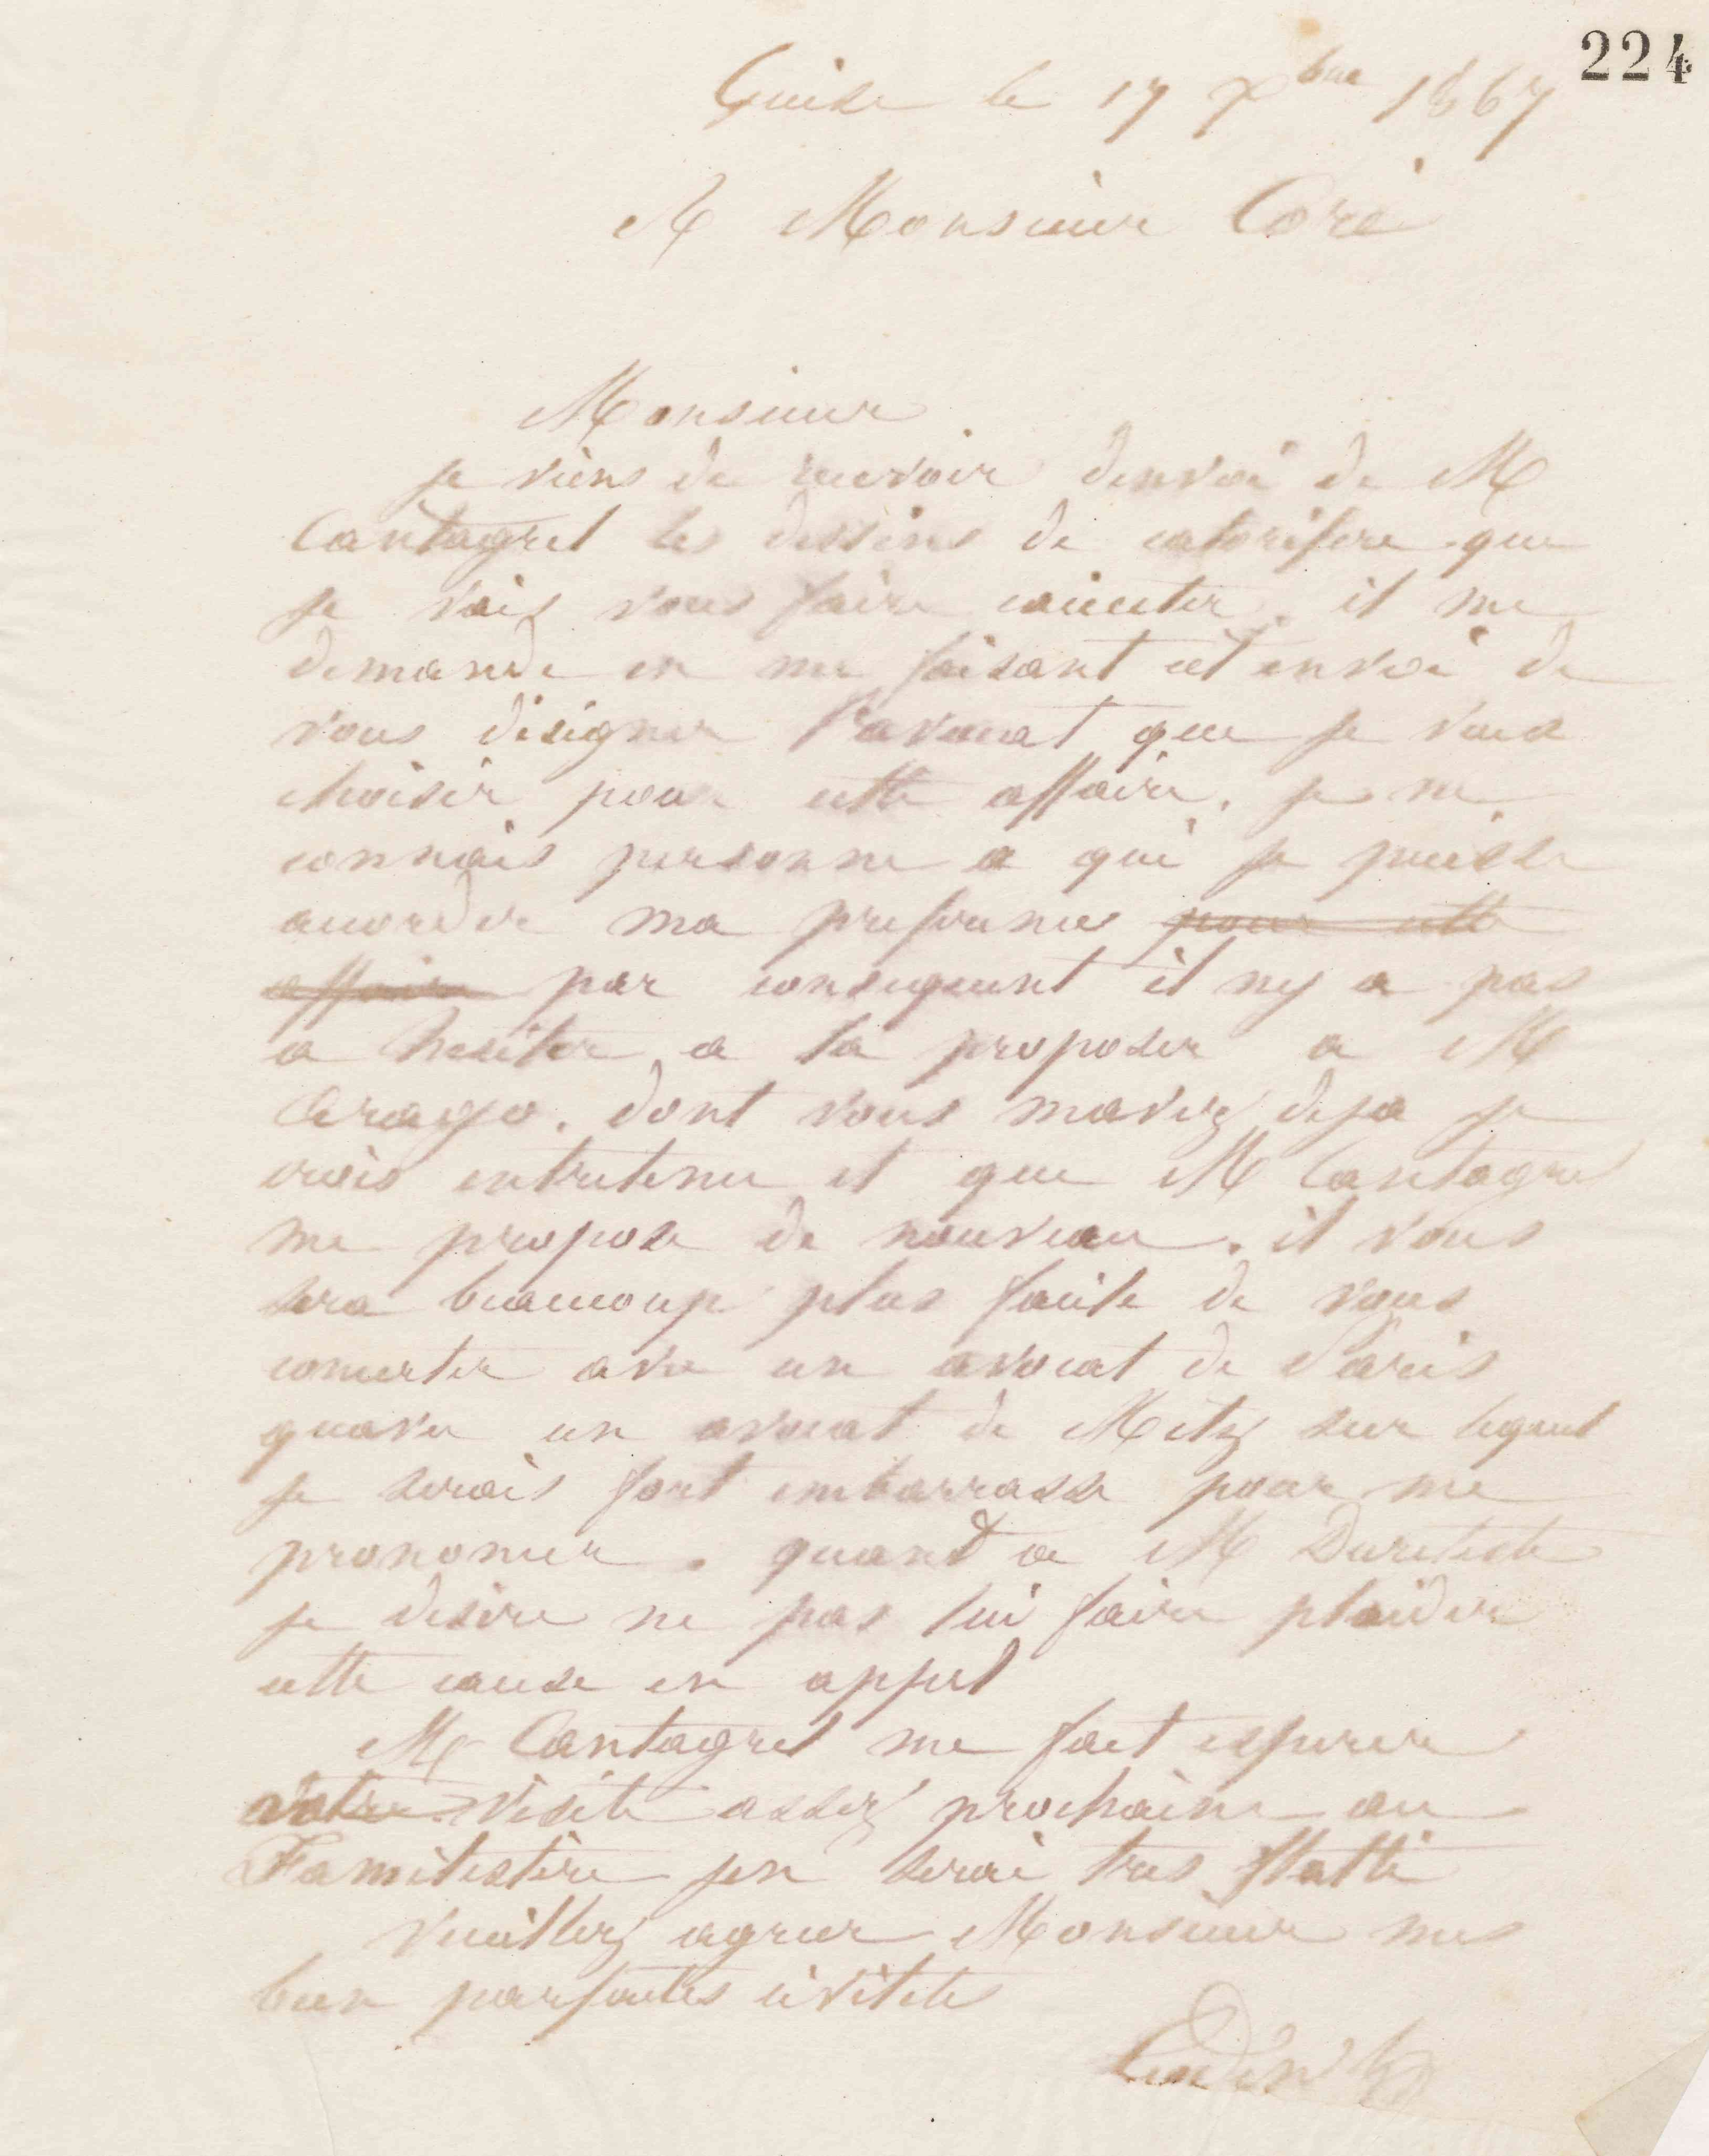 224
Guise le 17 Xbre 1867
A Monsieur Coré
Monsieur
je viens de recevoir denvoi de M
Cantagrel les dessins de calorifere que
je vais vous faire executer. il me
demande en me faisant cet envoi de
vous designer l'avocat que je veux
choisir pour cette affaire. je ne
connais personne a qui je puisse
accorder ma preference pour cette
affaire par consequent il ny a pas
a hesiter a la proposer a M
Arago. dont vous mavez deja je
crois entretenu et que M Cantagrel
me propose de nouveau. il vous
sera beaucoup plus facile de vous
concerter avec un avocat de Paris
quavec un avocat de Metz sur lequel
je serais fort embarrasse pour me
prononcer. quand a M
je desire ne pas lui faire plaider
cette cause en appel
M Cantagrel me fait esperer
votre visite assez prochaine au
Familistère jen serai tres flatté
veuillez agreer Monsieur mes
bien parfaites civilités
Godin